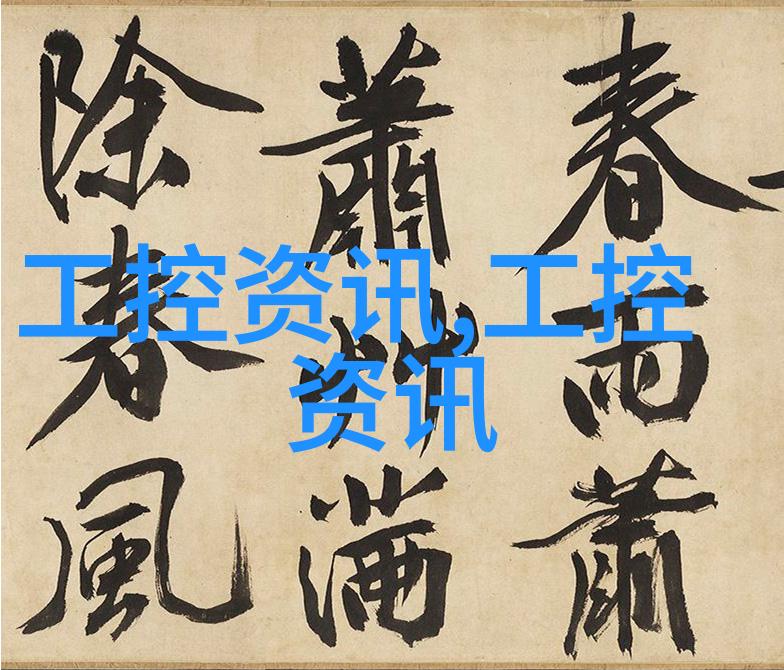 春雨蕭
蕭艸滿
除春風
工控资讯,工控
资讯